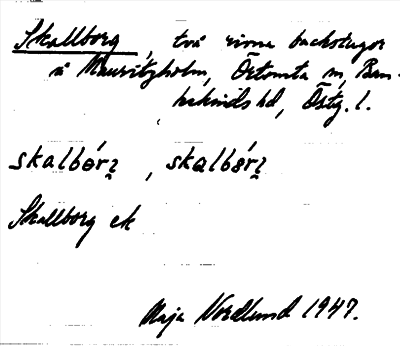 Skallborg, två rivna backstugor
å Mauritzholm, Örtomta sn, Ban-
kekinds hd, Östg. l.
skalbórʒ, skalbórʒ
Skallborg ek
Maja Nordlund 1947.